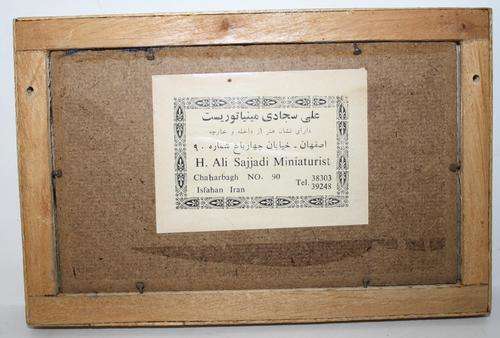 علی سجادی مینیاتوریست
دارای نشان هنر از داخله و خارجه
اصفهان - خیابان چهارباغ شماره ۹۰
H. Ali Sajjadi Miniaturist
Chaharbagh NO. 90
Isfahan Iran
Tel 38303
39248